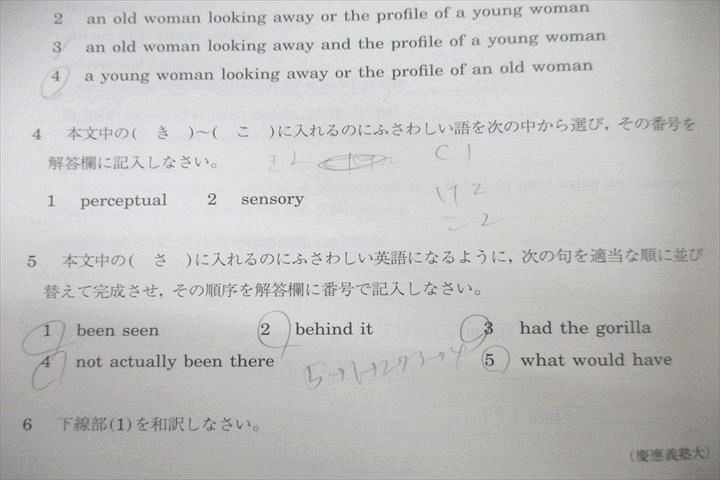 2 an old woman looking away or the profile of a young woman
3 an old woman looking away and the profile of a young woman
4 a young woman looking away or the profile of an old woman
4 本文中の( き )～( こ )に入れるのにふさわしい語を次の中から選び,その番号を
解答欄に記入しなさい。
き2 く1
け2
1 perceptual 2 sensory
こ2
5 本文中の( さ )に入れるのにふさわしい英語になるように,次の句を適当な順に並び
替えて完成させ,その順序を解答欄に番号で記入しなさい。
1 been seen 2 behind it 3 had the gorilla
4 not actually been there 5 what would have
5→1→2→3→4
6 下線部(1)を和訳しなさい。
(慶應義塾大)